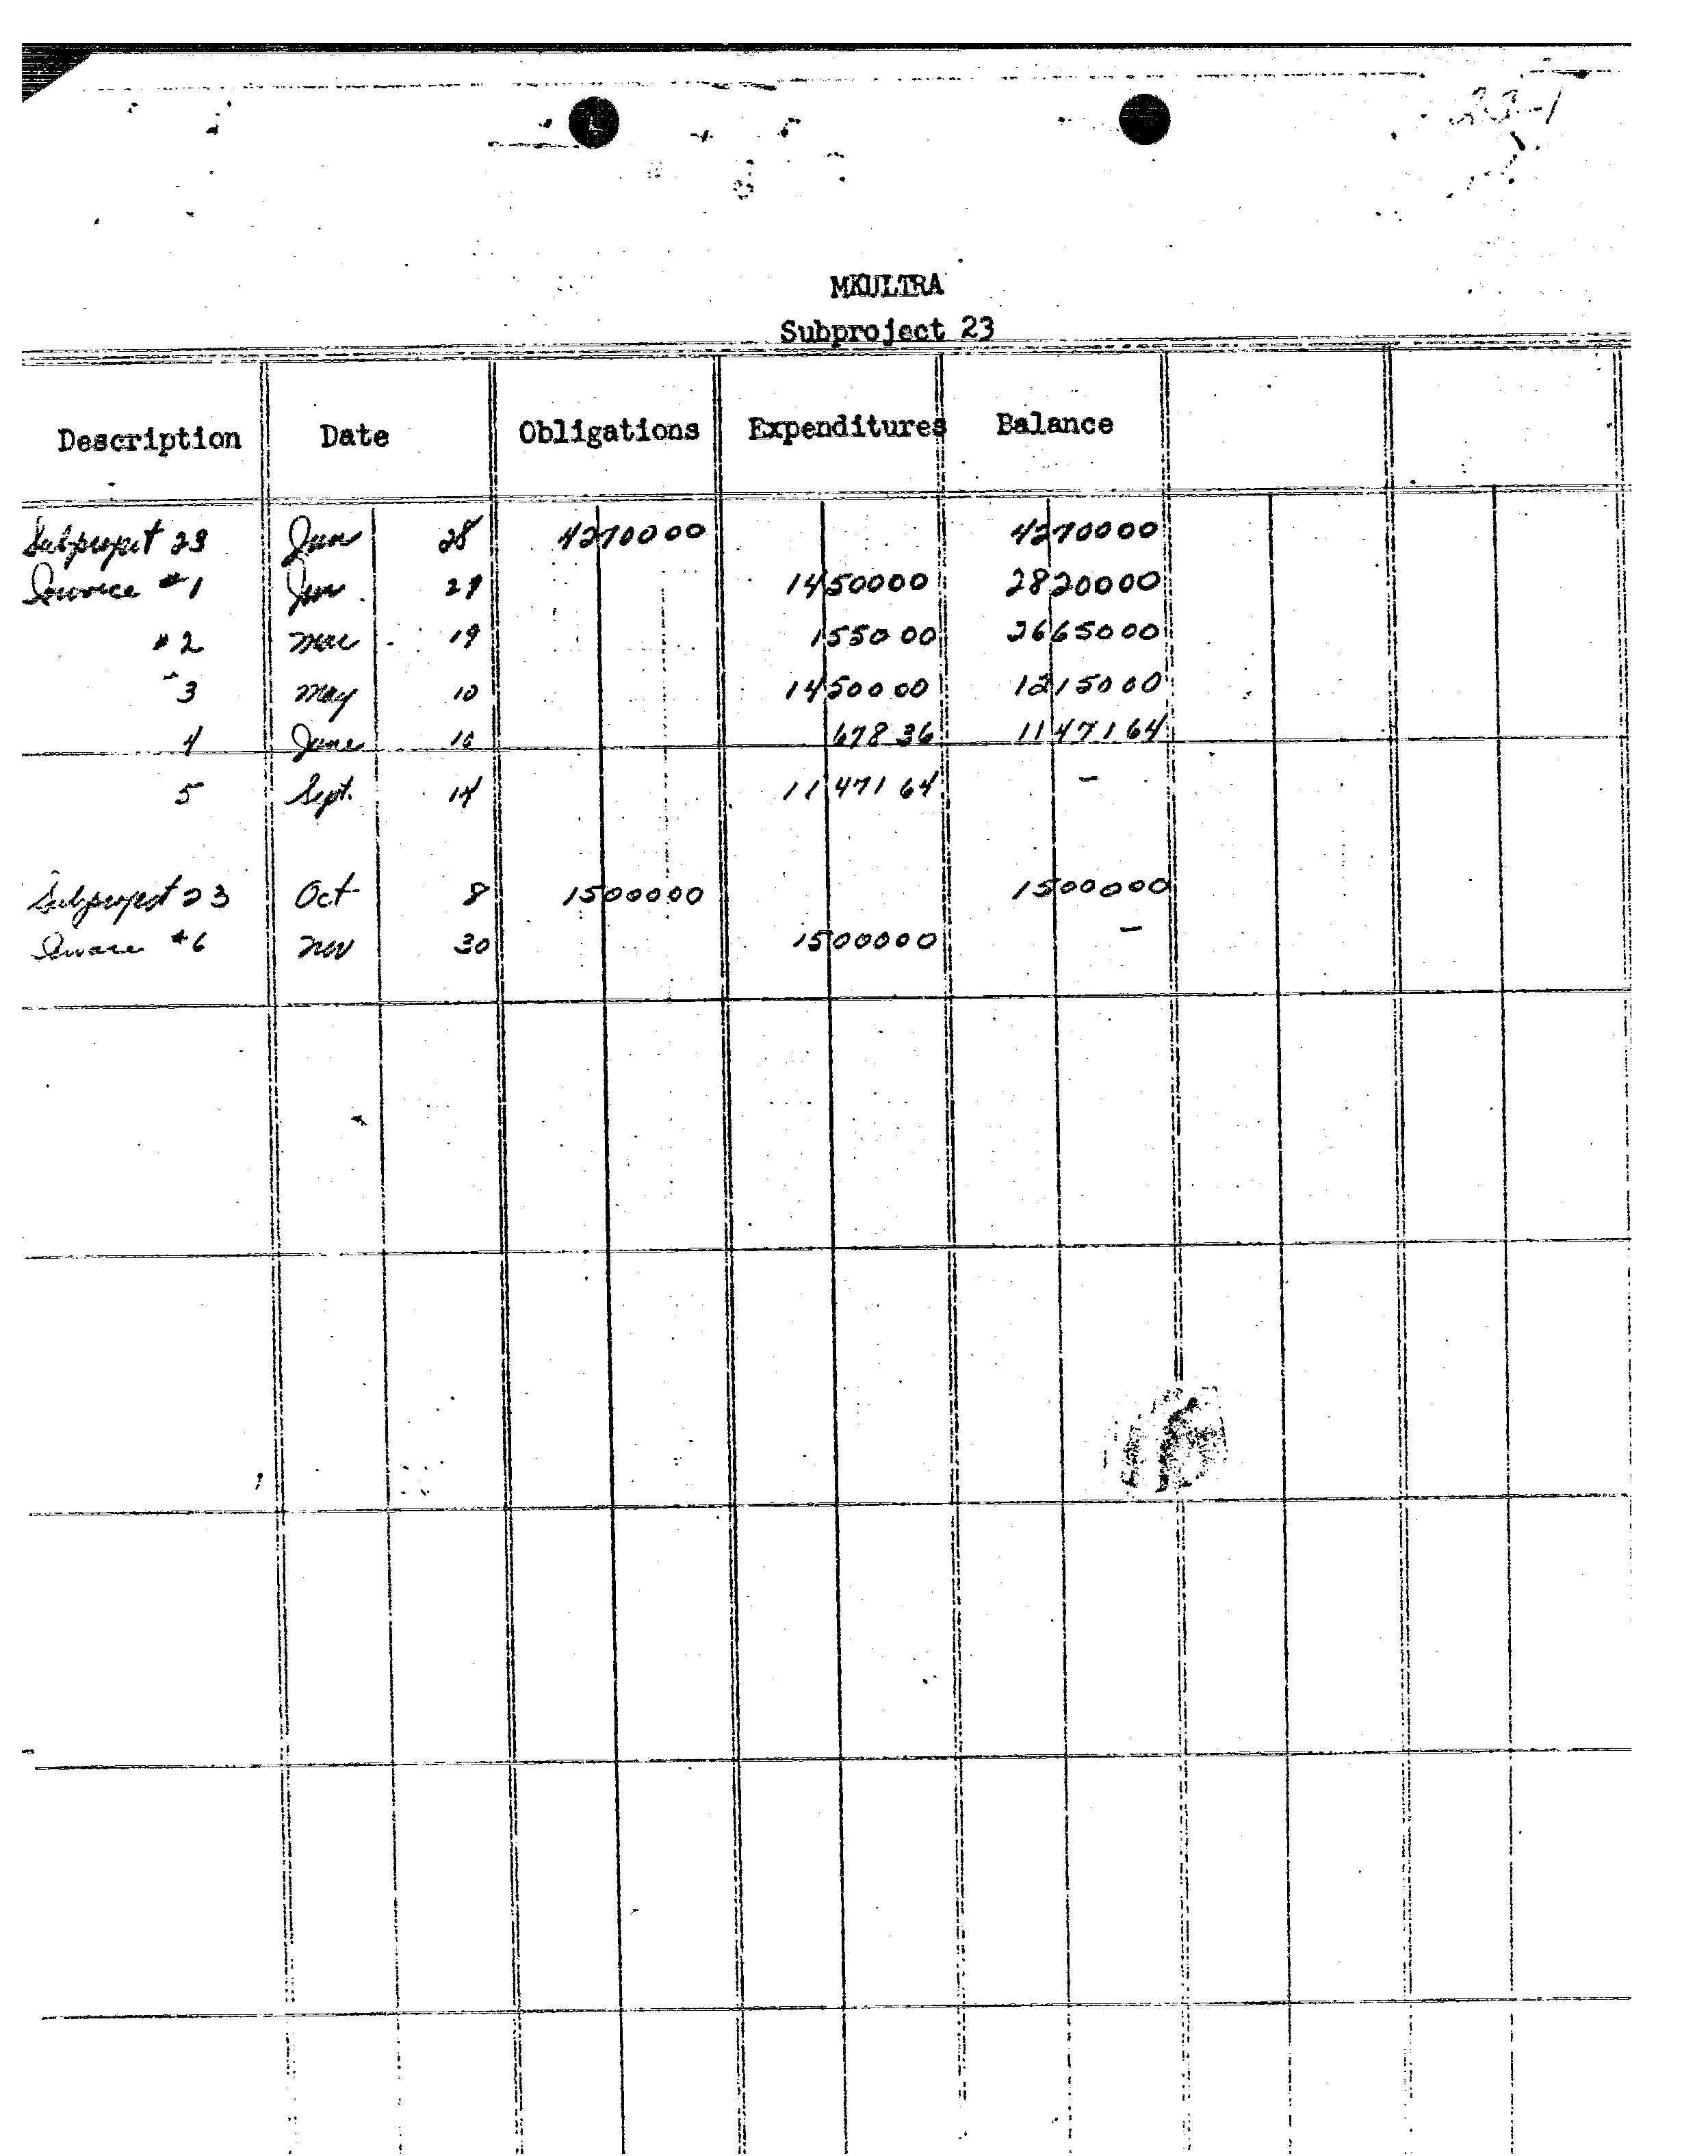 23-1
MKULTRA
Subproject 23
Description Date Obligations Expenditures Balance
Subproject 23 Jan 28 4270000 4270000
Invoice #1 Jan 29 1450000 2820000
#2 Mar 19 155000 2665000
3 May 10 1450000 1215000
4 June 16 67836 1147164
5 Sept. 14 1147164 –
Subproject 23 Oct 8 1500000 1500000
Invoice #6 Nov 30 1500000 –